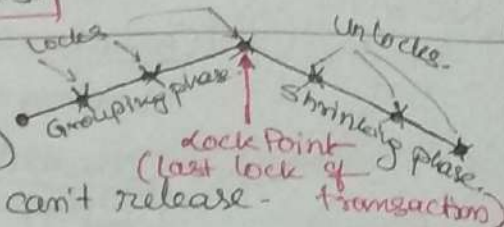 Locks
Unlocks.
Grouping phase
Shrinking phase.
Lock Point
(last lock of
transaction)
can't release.